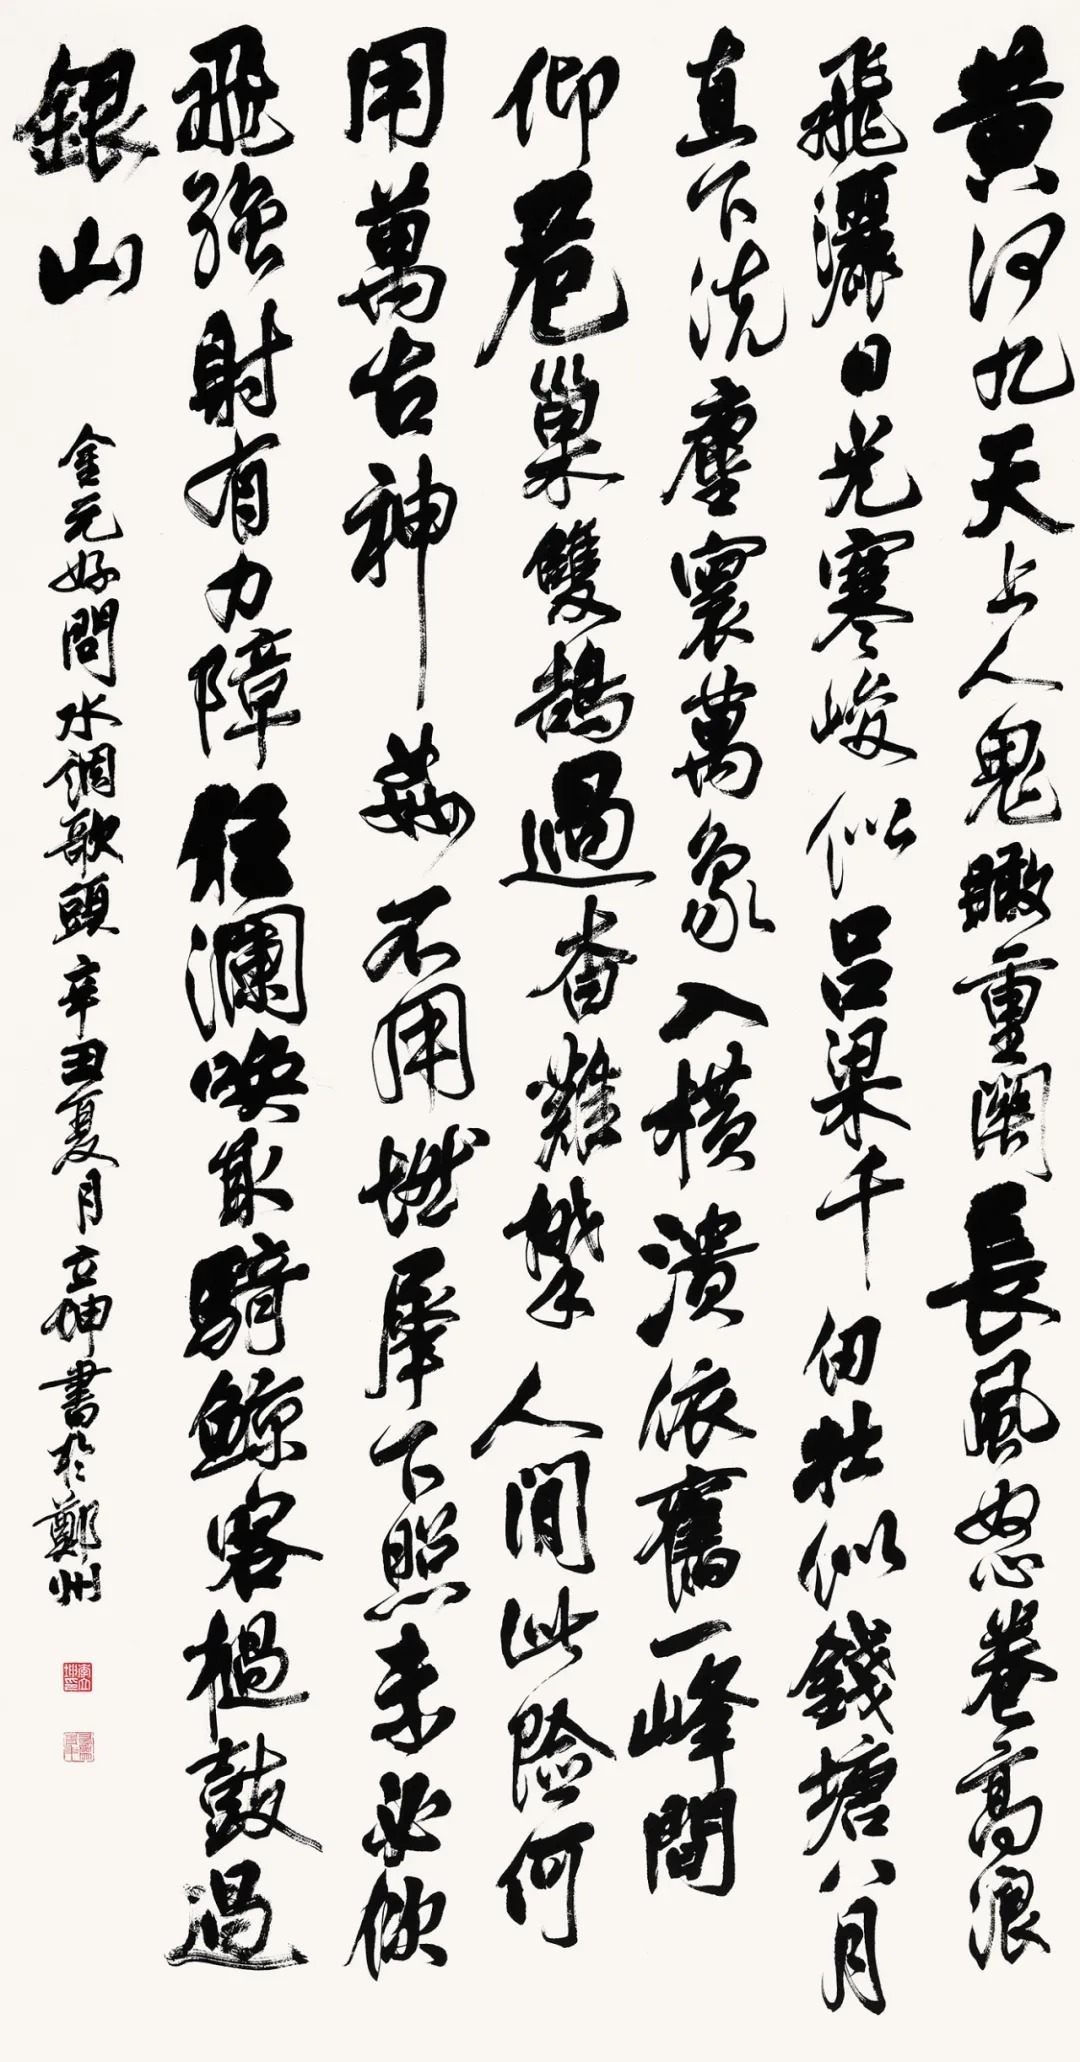 黄河九天上人鬼瞰重關長風怒卷高浪
飛灑日光寒峻似吕梁千仞壯似錢塘八月
直下洗塵寰萬象入横潰依舊一峰間
仰危巢雙鵠過杳難攀人間此險何
用萬古神姦不用燃犀下照未必佽
飛强射有力障狂瀾唤取騎鯨客撾鼓過
銀山
金元好問水調歌頭辛丑夏月立坤書於鄭州